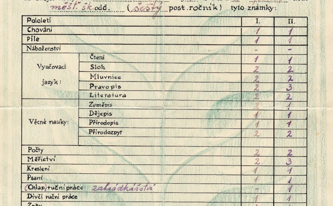 měšť. šk. odd. (šestý post. ročník) tyto známky:
Pololetí I. II.
Chování 1 1
Píle 1 1
Náboženství - -
Vyučovací jazyk:
Čtení 1 1
Sloh 2 2
Mluvnice 2 2
Pravopis 2 3
Literatura 2 2
Věcné nauky:
Zeměpis 1 1
Dějepis 1 1
Přírodopis 1 1
Přírodozpyt 2 2
Počty 2 2
Měřictví 2 3
Kreslení 1 1
Psaní 1
(Chlap.) ruční práce 1
Dívčí ruční práce 1